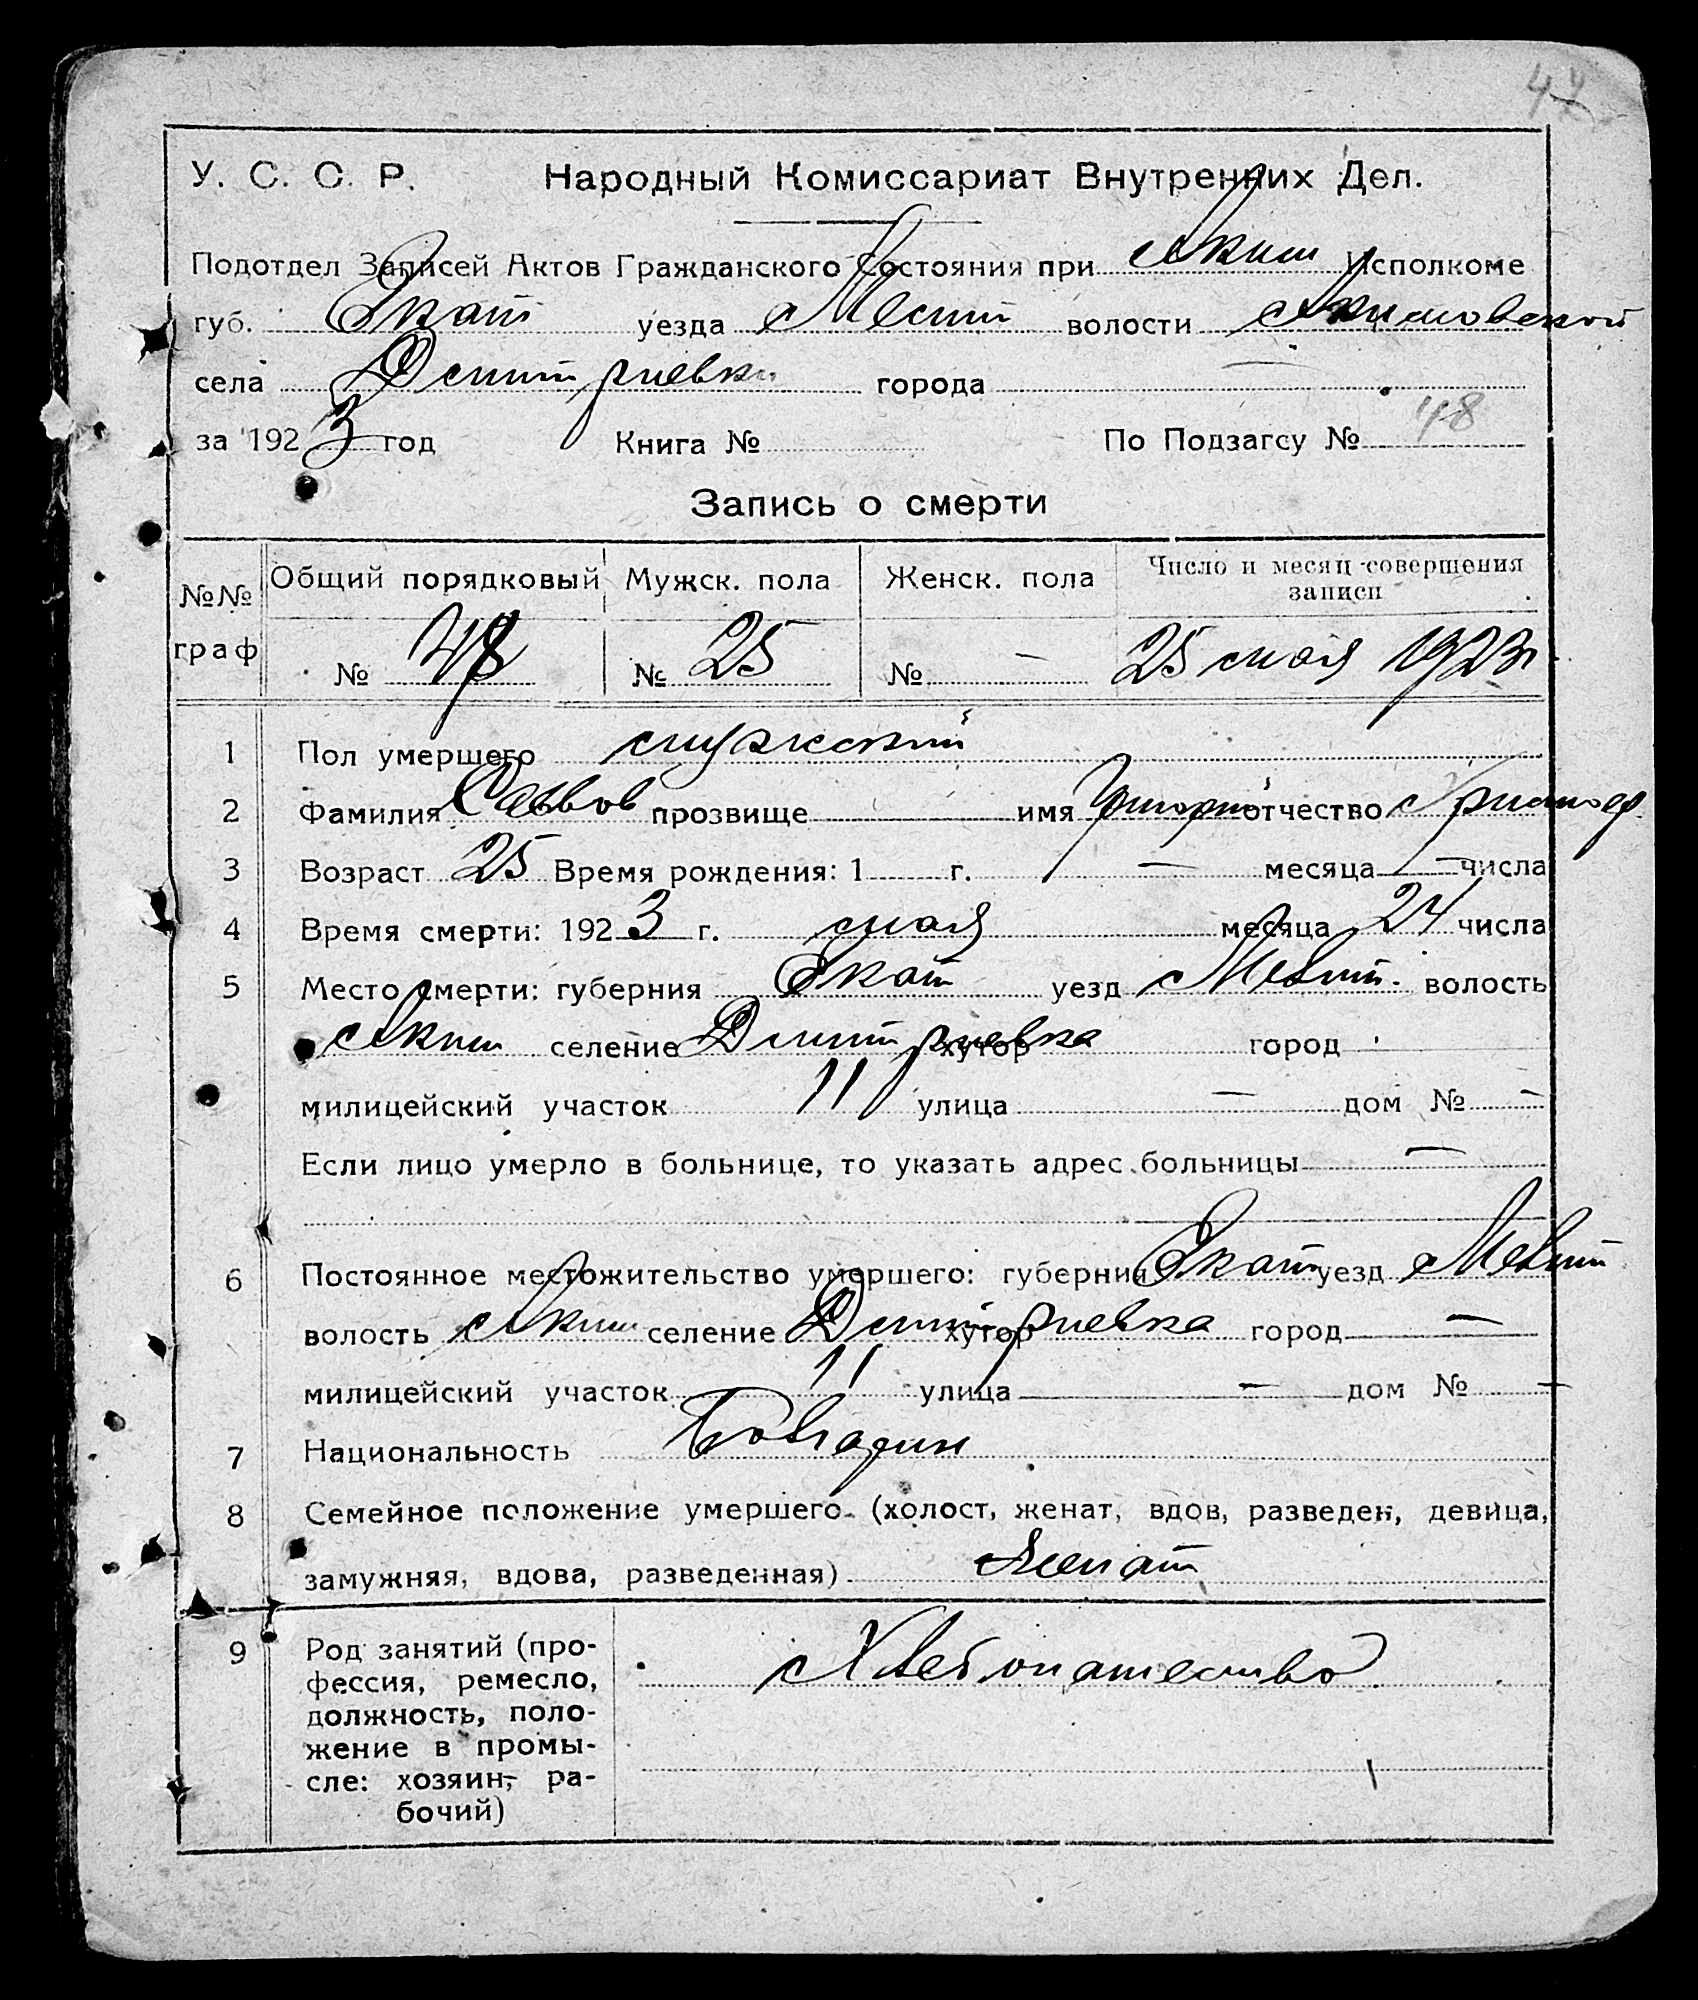 У. С. С. Р. Народный Комиссариат Внутренних Дел.
Подотдел Записей Актов Гражданского Состояния при Аким Исполкоме
губ. Екат уезда Мелит волости Акимовской
села Дмитриевки города —
за 1923 год Книга № По Подзагсу № 48
Запись о смерти
№№ граф Общий порядковый Мужск. пола Женск. пола Число и месяц совершения записи
№ 48 № 25 № — 25 мая 1923 г
1 Пол умершего мужский
2 Фамилия Саввов прозвище имя Григорий отчество
3 Возраст 25 Время рождения: 1 г. — месяца — числа
4 Время смерти: 1923 г. мая месяца 24 числа
5 Место смерти: губерния Екат уезд Мелит. волость
Аким селение Дмитриевка хутор город
милицейский участок 11 улица — дом № —
Если лицо умерло в больнице, то указать адрес больницы —
6 Постоянное местожительство умершего: губерния Екат уезд Мелит
волость Аким селение Дмитриевка хутор город —
милицейский участок 11 улица — дом № —
7 Национальность Болгарин
8 Семейное положение умершего (холост, женат, вдов, разведен, девица,
замужняя, вдова, разведенная) Женат
9 Род занятий (про-
фессия, ремесло,
должность, поло-
жение в промы-
сле: хозяин, ра-
бочий)
Хлебопашество